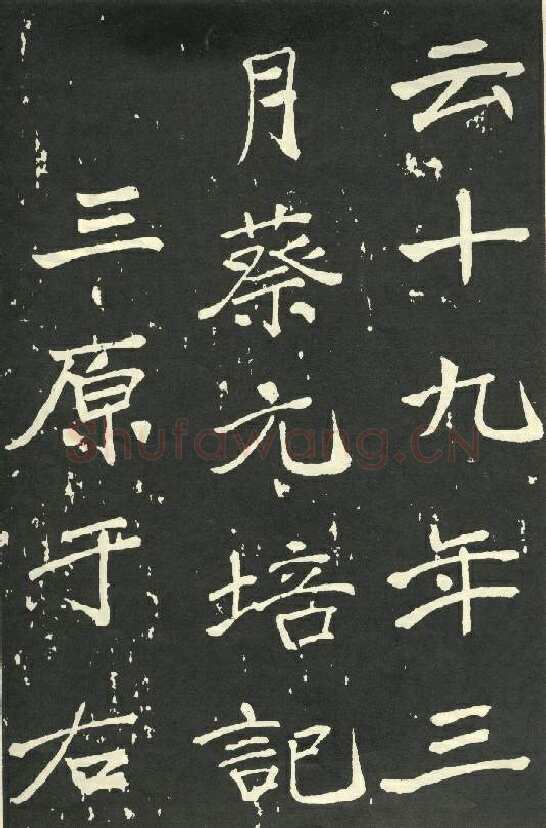 云十九年三
月蔡元培記
三原于右
Shufawang.CN